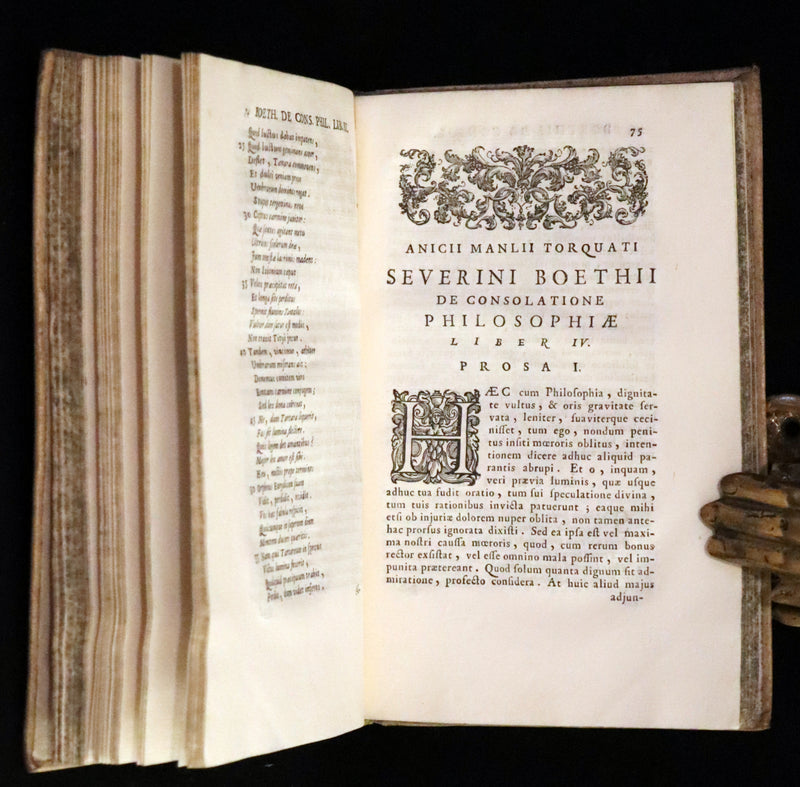 BOETH. DE CONS. PHIL. LIB. III.
Quod luctus dabat impotens,
25 Quod luctum geminans amor,
Deflet, Tænara commovens,
Et dulci veniam prece
Umbrarum dominos rogat.
Stupet tergeminus novo
30 Captus carmine janitor:
Quæ sontes agitant metu
Ultrices scelerum deæ,
Jam mœstæ lacrimis madent:
Non Ixionium caput
35 Velox præcipitat rota,
Et longa site perditus
Spernit flumina Tantalus:
Vultur dum satur est modis,
Non traxit Tityi jecur.
40 Tandem, vincimur, arbiter
Umbrarum miserans ait:
Donemus comitem viro
Emtam carmine conjugem;
Sed lex dona coërceat,
45 Ne, dum Tartara liquerit,
Fas sit lumina flectere.
Quis legem det amantibus?
Major lex amor est sibi.
Heu, noctis prope terminos
50 Orpheus Eurydicen suam
Vidit, perdidit, occidit.
Vos hæc fabula respicit,
Quicunque in superum diem
Mentem ducere quæritis.
55 Nam qui Tartareum in specus
Victus lumina flexerit,
Quidquid præcipuum trahit,
Perdit, dum videt inferos.
75
ANICII MANLII TORQUATI
SEVERINI BOETHII
DE CONSOLATIONE
PHILOSOPHIÆ
LIBER IV.
PROSA I.
HÆC cum Philosophia, dignita-
te vultus, & oris gravitate ser-
vata, leniter, suaviterque ceci-
nisset, tum ego, nondum peni-
tus insiti mœroris oblitus, inten-
tionem dicere adhuc aliquid pa-
rantis abrupi. Et o, inquam,
veri prævia luminis, quæ usque
adhuc tua fudit oratio, tum sui speculatione divina,
tum tuis rationibus invicta patuerunt; eaque mihi
etsi ob injuriæ dolorem nuper oblita, non tamen ante-
hac prorsus ignorata dixisti. Sed ea ipsa est vel maxi-
ma nostri caussa mœroris, quod, cum rerum bonus
rector exsistat, vel esse omnino mala possint, vel im-
punita prætereant. Quod solum quanta dignum sit ad-
miratione, profecto considera. At huic aliud majus
adjun-